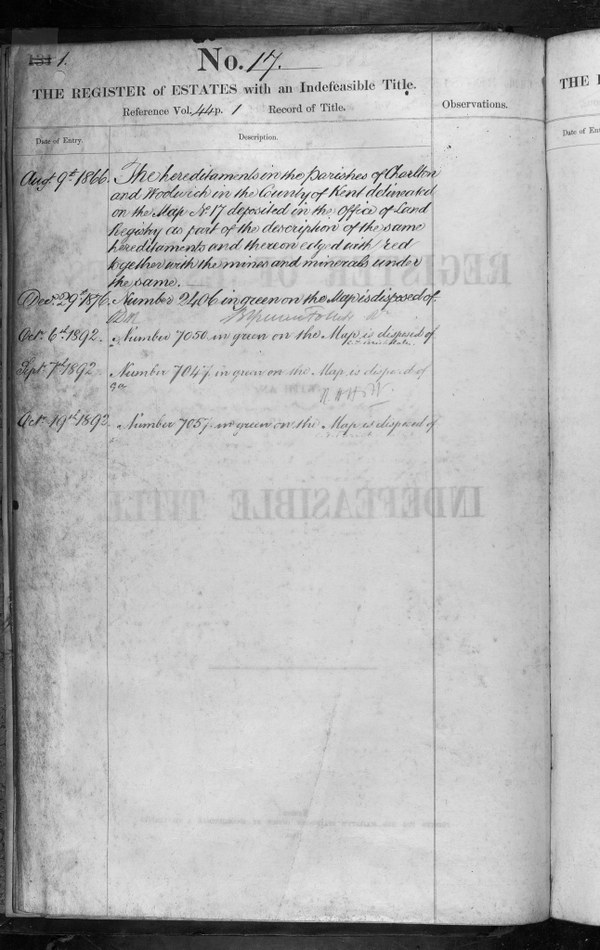 1.
No. 17.
THE REGISTER of ESTATES with an Indefeasible Title.
Reference Vol. 44 p. 1 Record of Title.
Observations.
Date of Entry.
Description.
Augt. 9th 1866. The hereditaments in the parishes of Charlton
and Woolwich in the County of Kent delineated
on the Map No 17 deposited in the Office of Land
Registry as part of the description of the same
hereditaments and thereon edged with red
together with the mines and minerals under
the same.
Decr. 29th 1876. Number 2406 in green on the Map is disposed of
Octr. 6th 1892. Number 7050 in green on the Map is disposed of
Septr. 7th 1892 Number 7047 in green on the Map is disposed of
Octr. 19th 1893. Number 7057 in green on the Map is disposed of
THE R
Date of Ent
REGISTER OF
INDEFEASIBLE TITLE